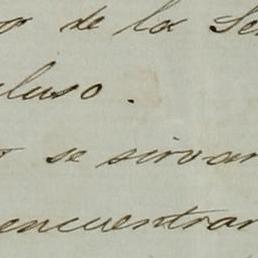 o de la Se
cluso.
o se sirvan
encuentran